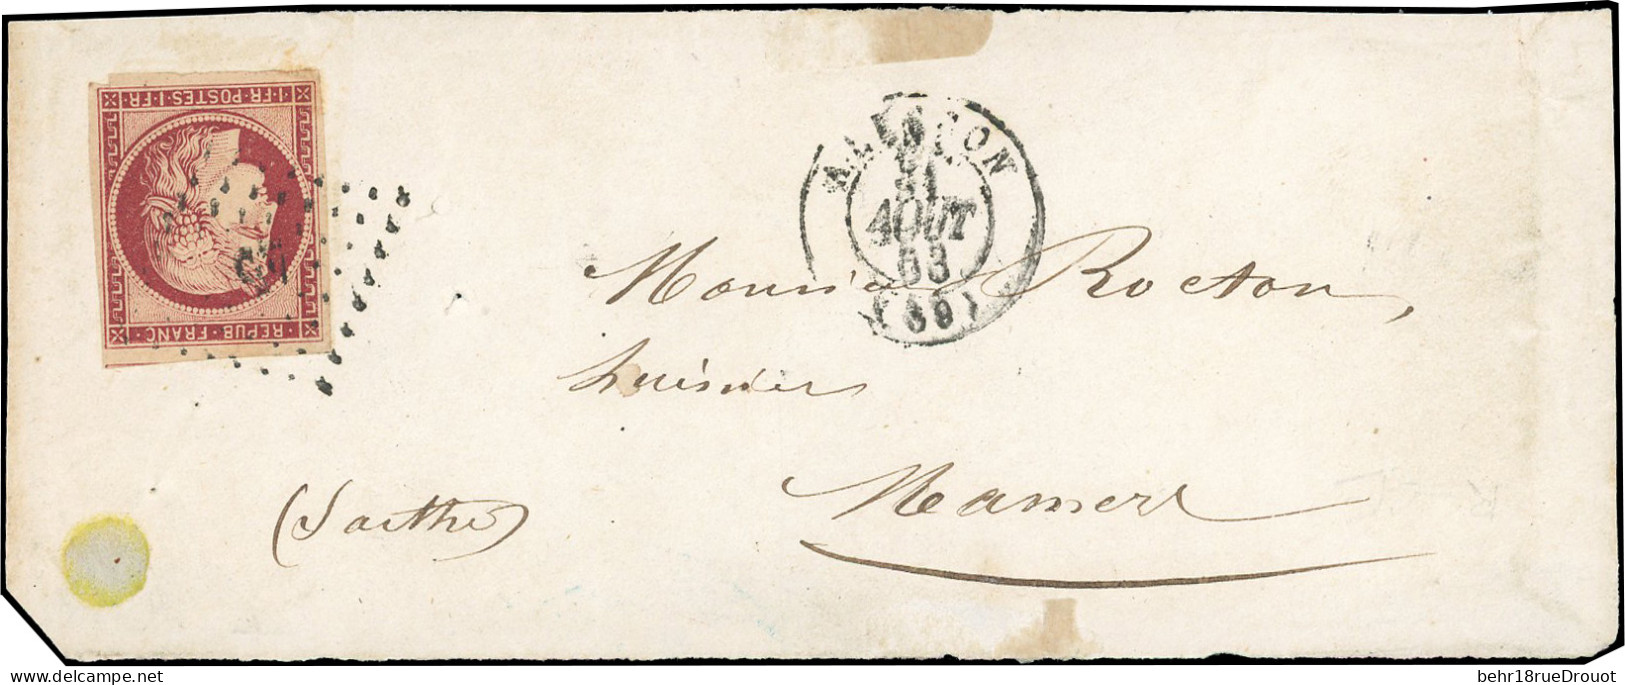 1·FR·POSTES·1·FR·
REPUB·FRANC·
ALENÇON
31
AOUT
53
Monsieur Rocton,
huissier
Mamers
(Sarthe)
behr18rueDrouot